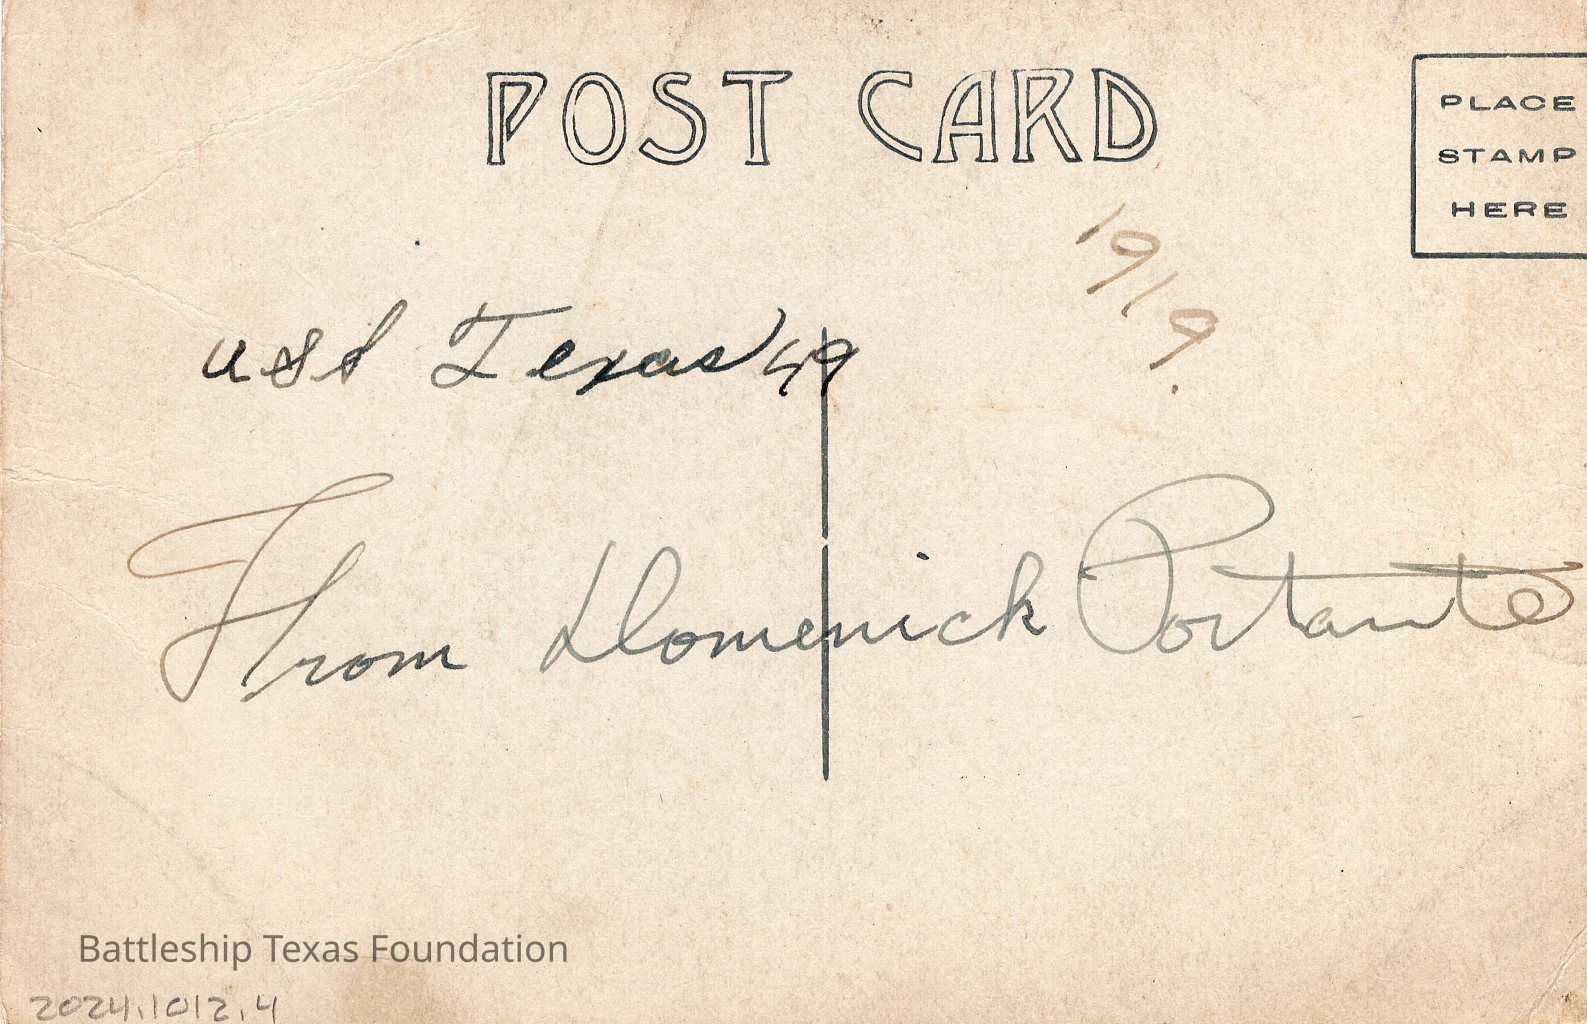 POST CARD
PLACE
STAMP
HERE
1919.
USS Texas
From Domenick Portante
Battleship Texas Foundation
2024.1012.4